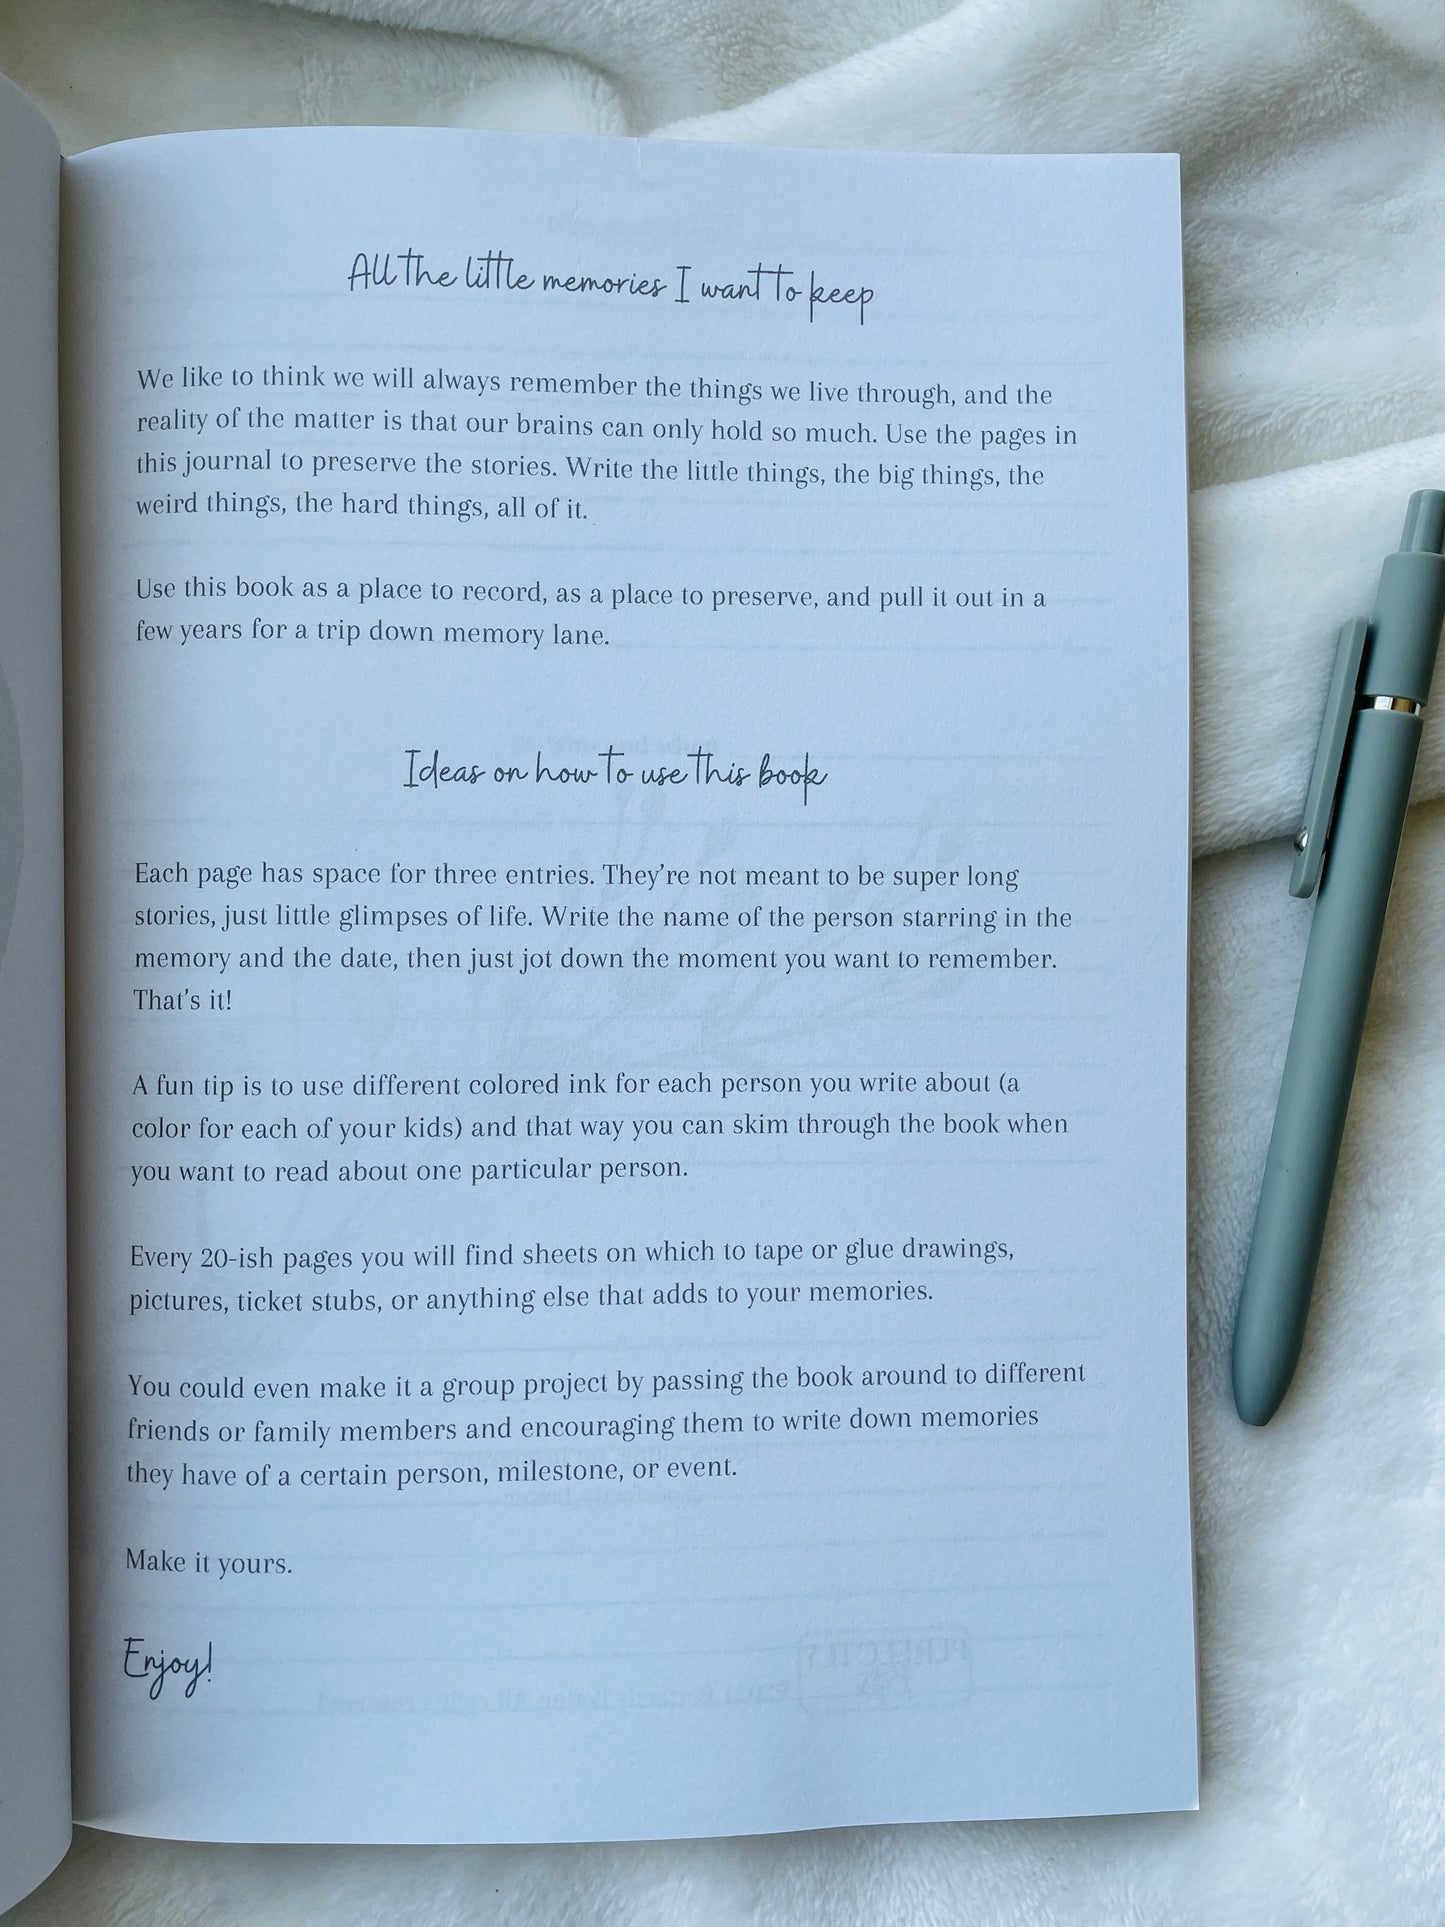 All the little memories I want to keep
We like to think we will always remember the things we live through, and the
reality of the matter is that our brains can only hold so much. Use the pages in
this journal to preserve the stories. Write the little things, the big things, the
weird things, the hard things, all of it.
Use this book as a place to record, as a place to preserve, and pull it out in a
few years for a trip down memory lane.
Ideas on how to use this book
Each page has space for three entries. They're not meant to be super long
stories, just little glimpses of life. Write the name of the person starring in the
memory and the date, then just jot down the moment you want to remember.
That's it!
A fun tip is to use different colored ink for each person you write about (a
color for each of your kids) and that way you can skim through the book when
you want to read about one particular person.
Every 20-ish pages you will find sheets on which to tape or glue drawings,
pictures, ticket stubs, or anything else that adds to your memories.
You could even make it a group project by passing the book around to different
friends or family members and encouraging them to write down memories
they have of a certain person, milestone, or event.
Make it yours.
Enjoy!